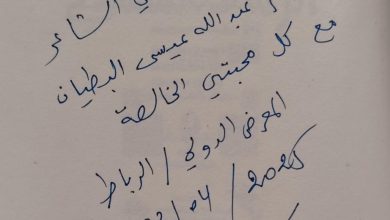 ي الشاعر
عبد الله عيسى البطيان
مع كل محبتي الخالصة
المعرض الدولي / الرباط
/04/2025